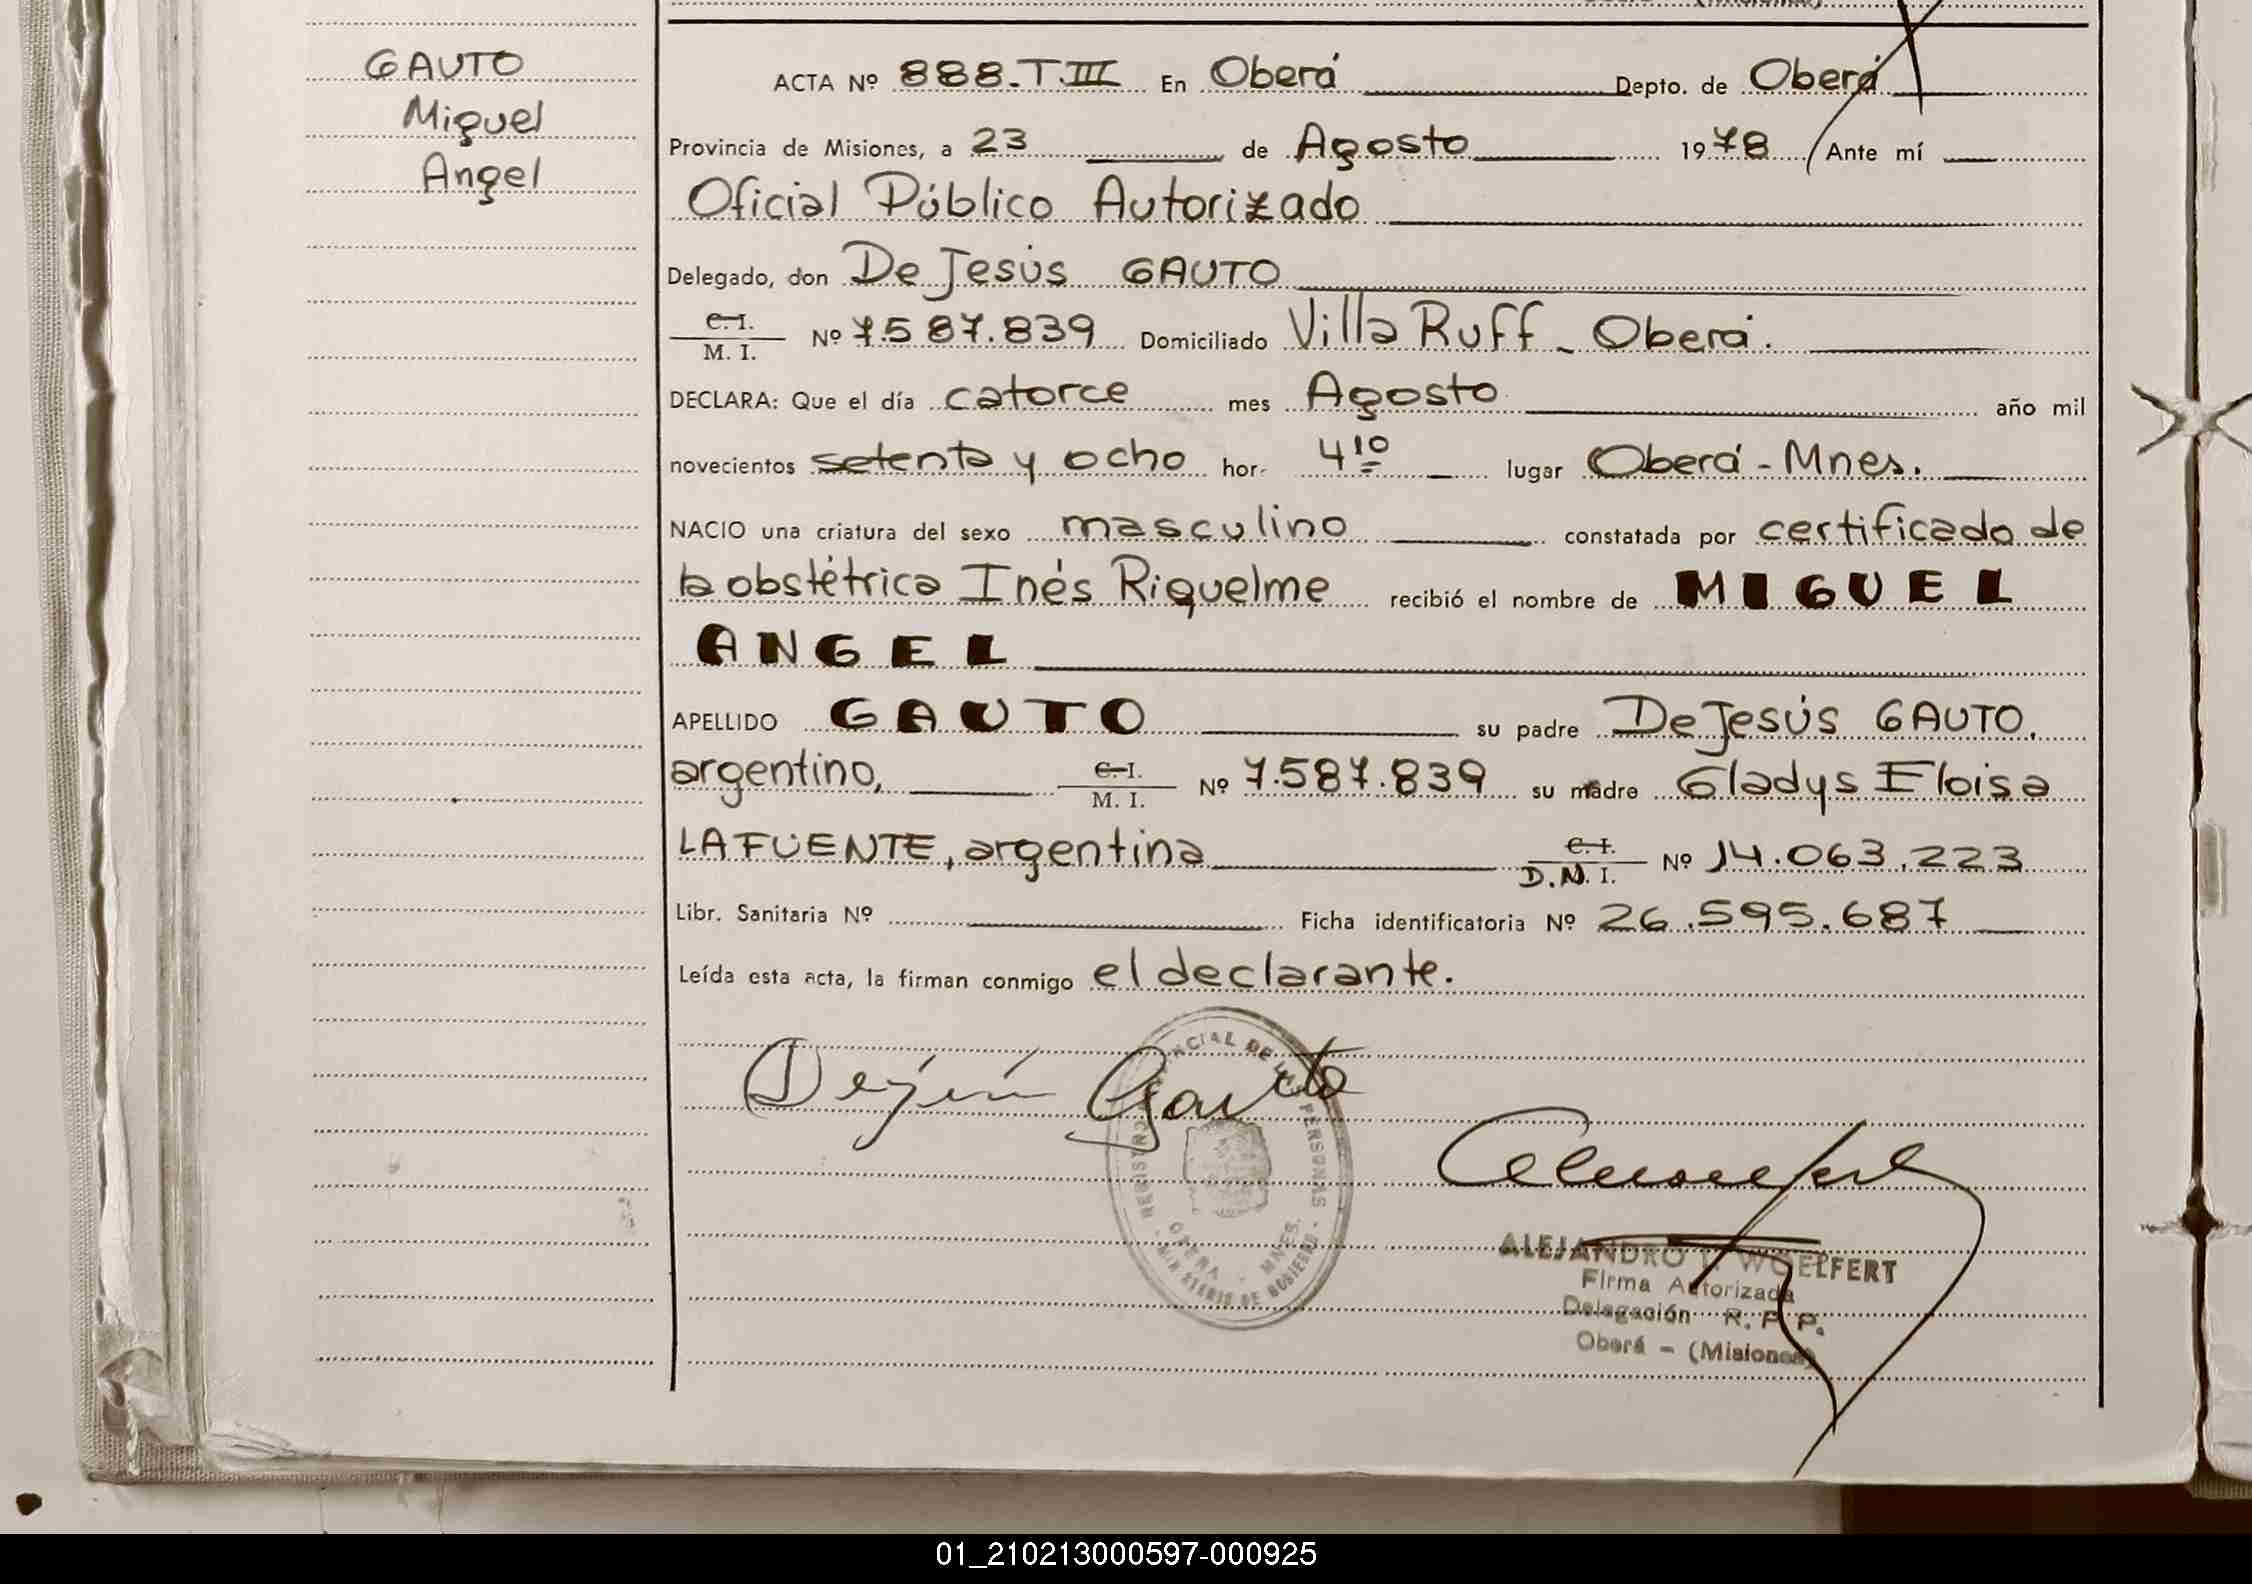 GAUTO
Miguel
Angel
ACTA Nº 888.T.III En Oberá Depto. de Oberá
Provincia de Misiones, a 23 de Agosto 1978 Ante mí
Oficial Público Autorizado
Delegado, don De Jesús GAUTO
C. I.
M. I. Nº 7.587.839 Domiciliado Villa Ruff - Oberá.
DECLARA: Que el día catorce mes Agosto año mil
novecientos setenta y ocho hor. 4 10 lugar Oberá - Mnes.
NACIO una criatura del sexo masculino constatada por certificado de
la obstétrica Inés Riquelme recibió el nombre de MIGUEL
ANGEL
APELLIDO GAUTO su padre De Jesús GAUTO,
argentino, C. I.
M. I. Nº 7.587.839 su madre Gladys Eloisa
LAFUENTE, argentina C. I.
D.N. I. Nº 14.063.223
Libr. Sanitaria Nº Ficha identificatoria Nº 26.595.687
Leída esta acta, la firman conmigo el declarante.
Dejesús Gauto
REGISTRO PROVINCIAL DE LAS PERSONAS
OBERA - MNES.
MINISTERIO DE GOBIERNO
ALEJANDRO WOELFERT
Firma Autorizada
Delegación R. P. P.
Oberá - (Misiones)
01_210213000597-000925